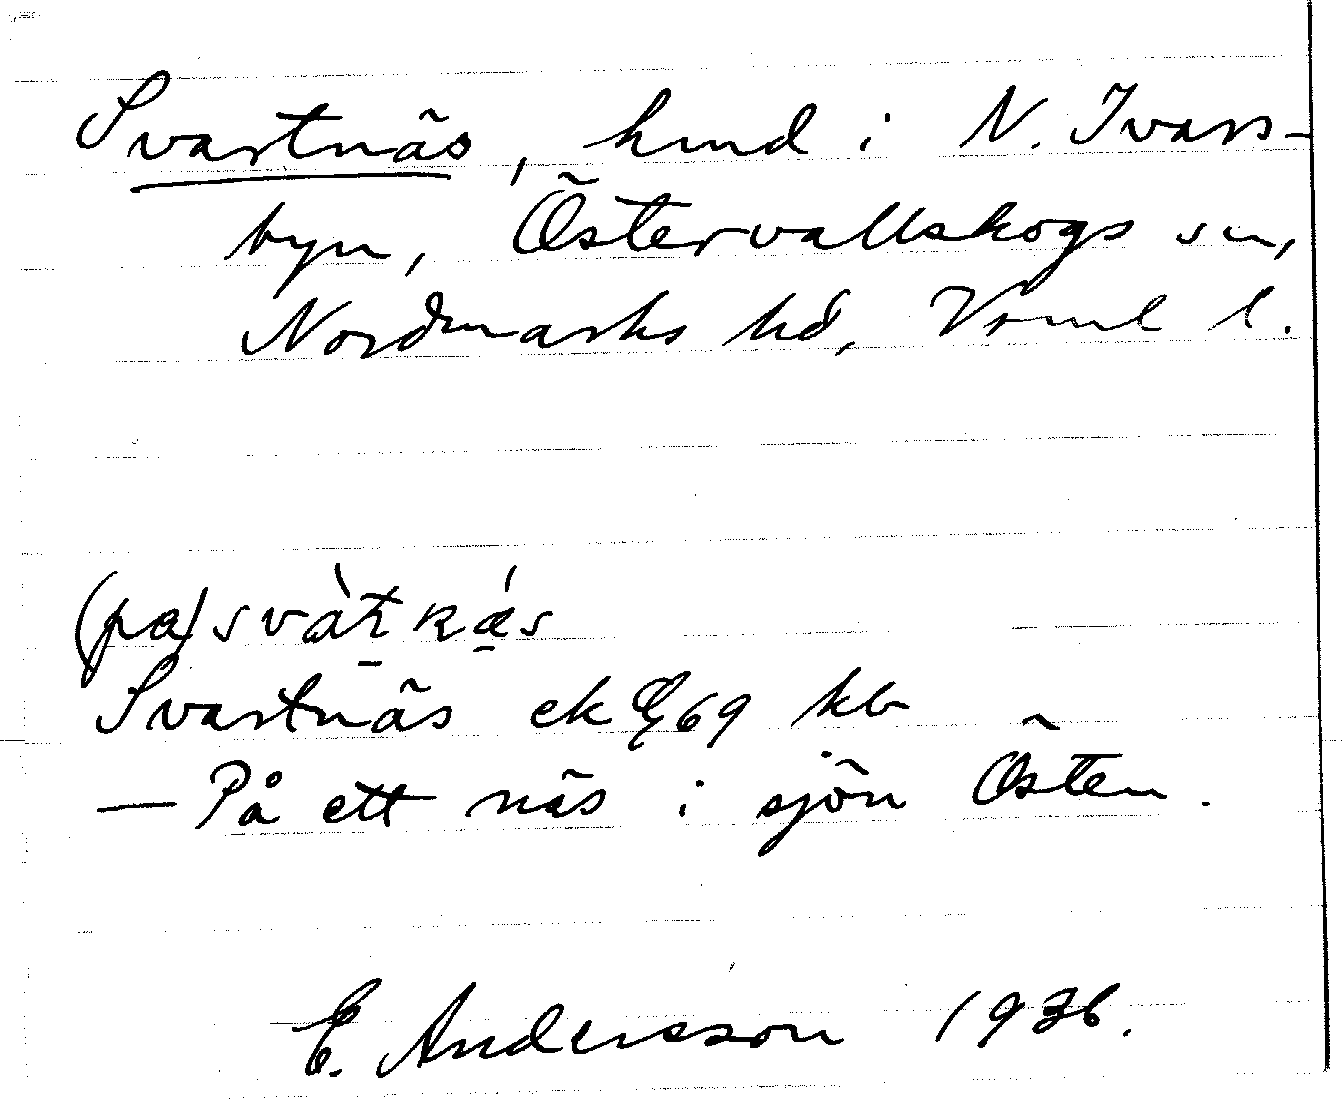 Svartnäs, hmd i N. Ivars-
byn, Östervallskogs sn,
Nordmarks hd, Vrml l.
(pa) svàt nǽs
Svartnäs ek 69 kb
— På ett näs i sjön Östen.
E. Andersson 1936.